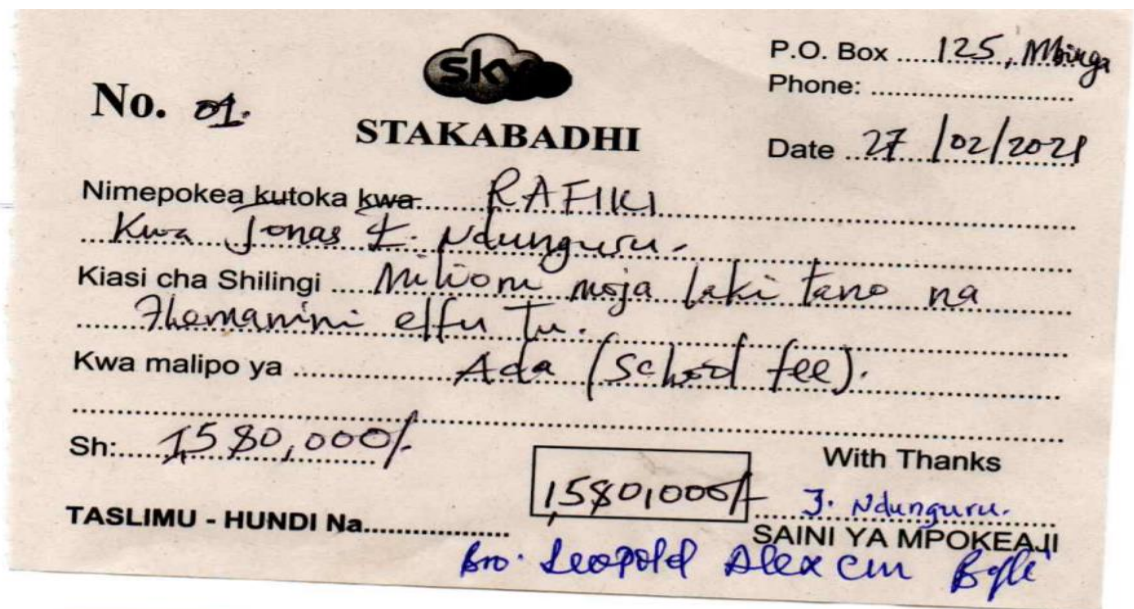 sky
P.O. Box 125, Mbinga
No. 01.
Phone:
STAKABADHI
Date 27/02/2021
Nimepokea kutoka kwa RAFIKI
Kwa Jonas L. Ndunguru.
Kiasi cha Shilingi Milioni moja laki tano na
Themanini elfu Tu.
Kwa malipo ya Ada (School fee).
Sh: 1,580,000/-
With Thanks
1,580,000/-
J. Ndunguru.
TASLIMU - HUNDI Na
SAINI YA MPOKEAJI
Bro. Leopold Alex